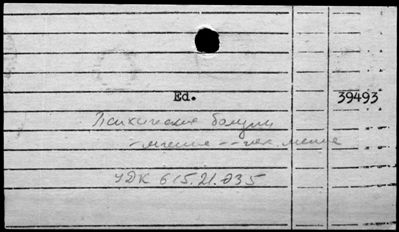 Ed. 39493
Психические болезни
-лечение--лек.
УДК 615.21.035